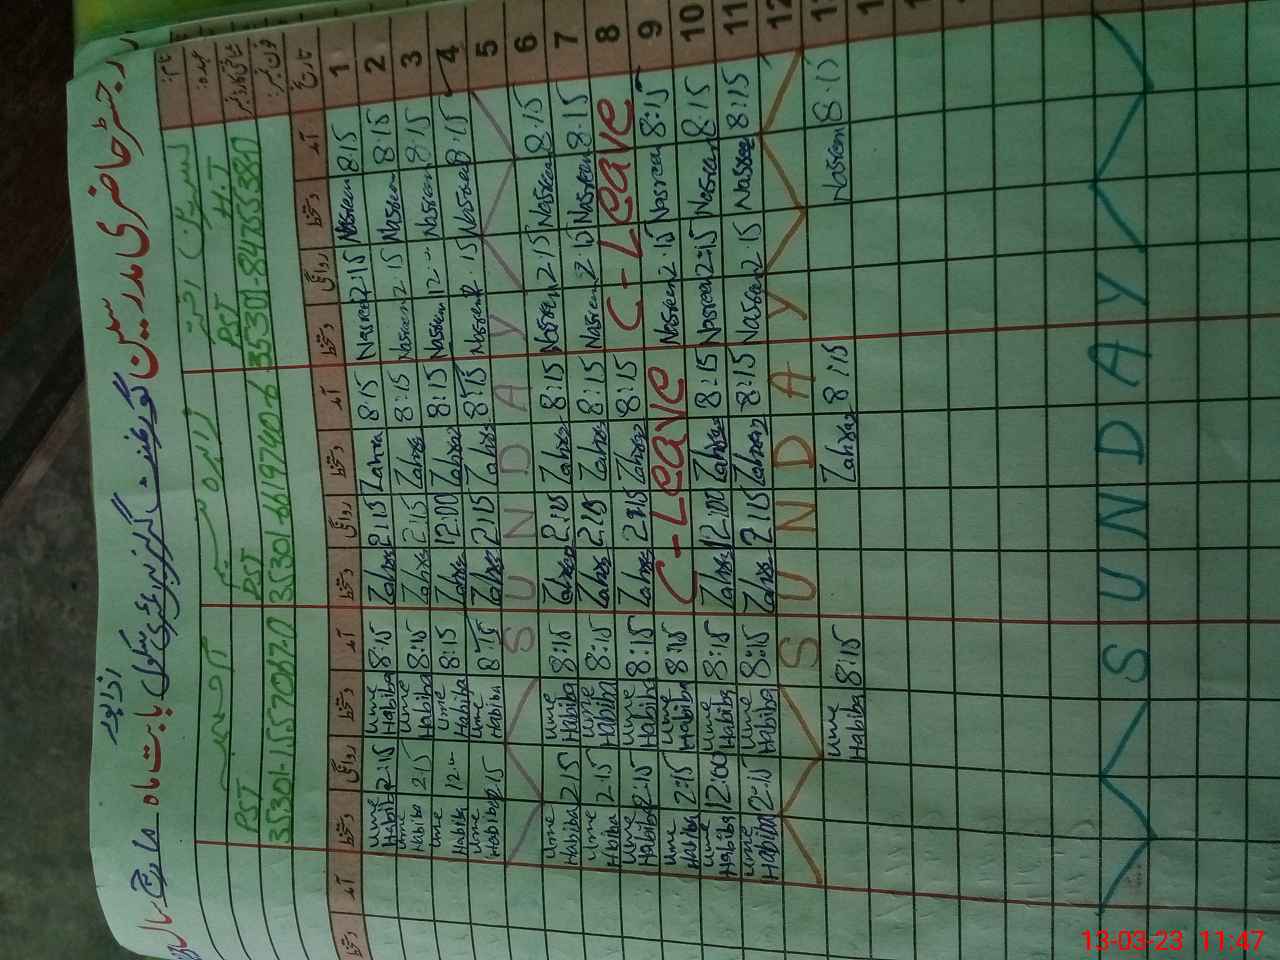 رجسٹر حاضری مدرسین گورنمنٹ گرلز پرائمری سکول اذاپور بابت ماہ مارچ سال
نام: نسرین اختر زاہدہ نسیم
عہدہ: PST H.T PST PST
شناختی کارڈ نمبر 35301-8478538-0 35301-6619740-6 35301-1557067-0
فون نمبر:
تاریخ آمد دستخط روانگی دستخط آمد دستخط روانگی دستخط آمد دستخط روانگی دستخط آمد دستخط
1 8:15 Nasreen 2:15 Nasreen 8:15 Zahra 2:15 Zahra 8:15 Ume Habiba 2:15 Ume Habiba
2 8:15 Nasreen 2:15 Nasreen 8:15 Zahra 2:15 Zahra 8:15 Ume Habiba 2:15 Ume Habiba
3 8:15 Nasreen 12:-- Nasreen 8:15 Zahra 12:00 Zahra 8:15 Ume Habiba 12:-- Ume Habiba
4 8:15 Nasreen 2:15 Nasreen 8:15 Zahra 2:15 Zahra 8:15 Ume Habiba 2:15 Ume Habiba
5 SUNDAY
6 8:15 Nasreen 2:15 Nasreen 8:15 Zahra 2:15 Zahra 8:15 Ume Habiba 2:15 Ume Habiba
7 8:15 Nasreen 2:15 Nasreen 8:15 Zahra 2:15 Zahra 8:15 Ume Habiba 2:15 Ume Habiba
8 C-Leave 8:15 Zahra 2:15 Zahra 8:15 Ume Habiba 2:15 Ume Habiba
9 8:15 Nasreen 2:15 Nasreen C-Leave 8:15 Ume Habiba 2:15 Ume Habiba
10 8:15 Nasreen 2:15 Nasreen 8:15 Zahra 12:00 Zahra 8:15 Ume Habiba 12:00 Ume Habiba
11 8:15 Nasreen 2:15 Nasreen 8:15 Zahra 2:15 Zahra 8:15 Ume Habiba 2:15 Ume Habiba
12 SUNDAY
13 8:15 Nasreen 8:15 Zahra 8:15 Ume Habiba
SUNDAY
13-03-23 11:47